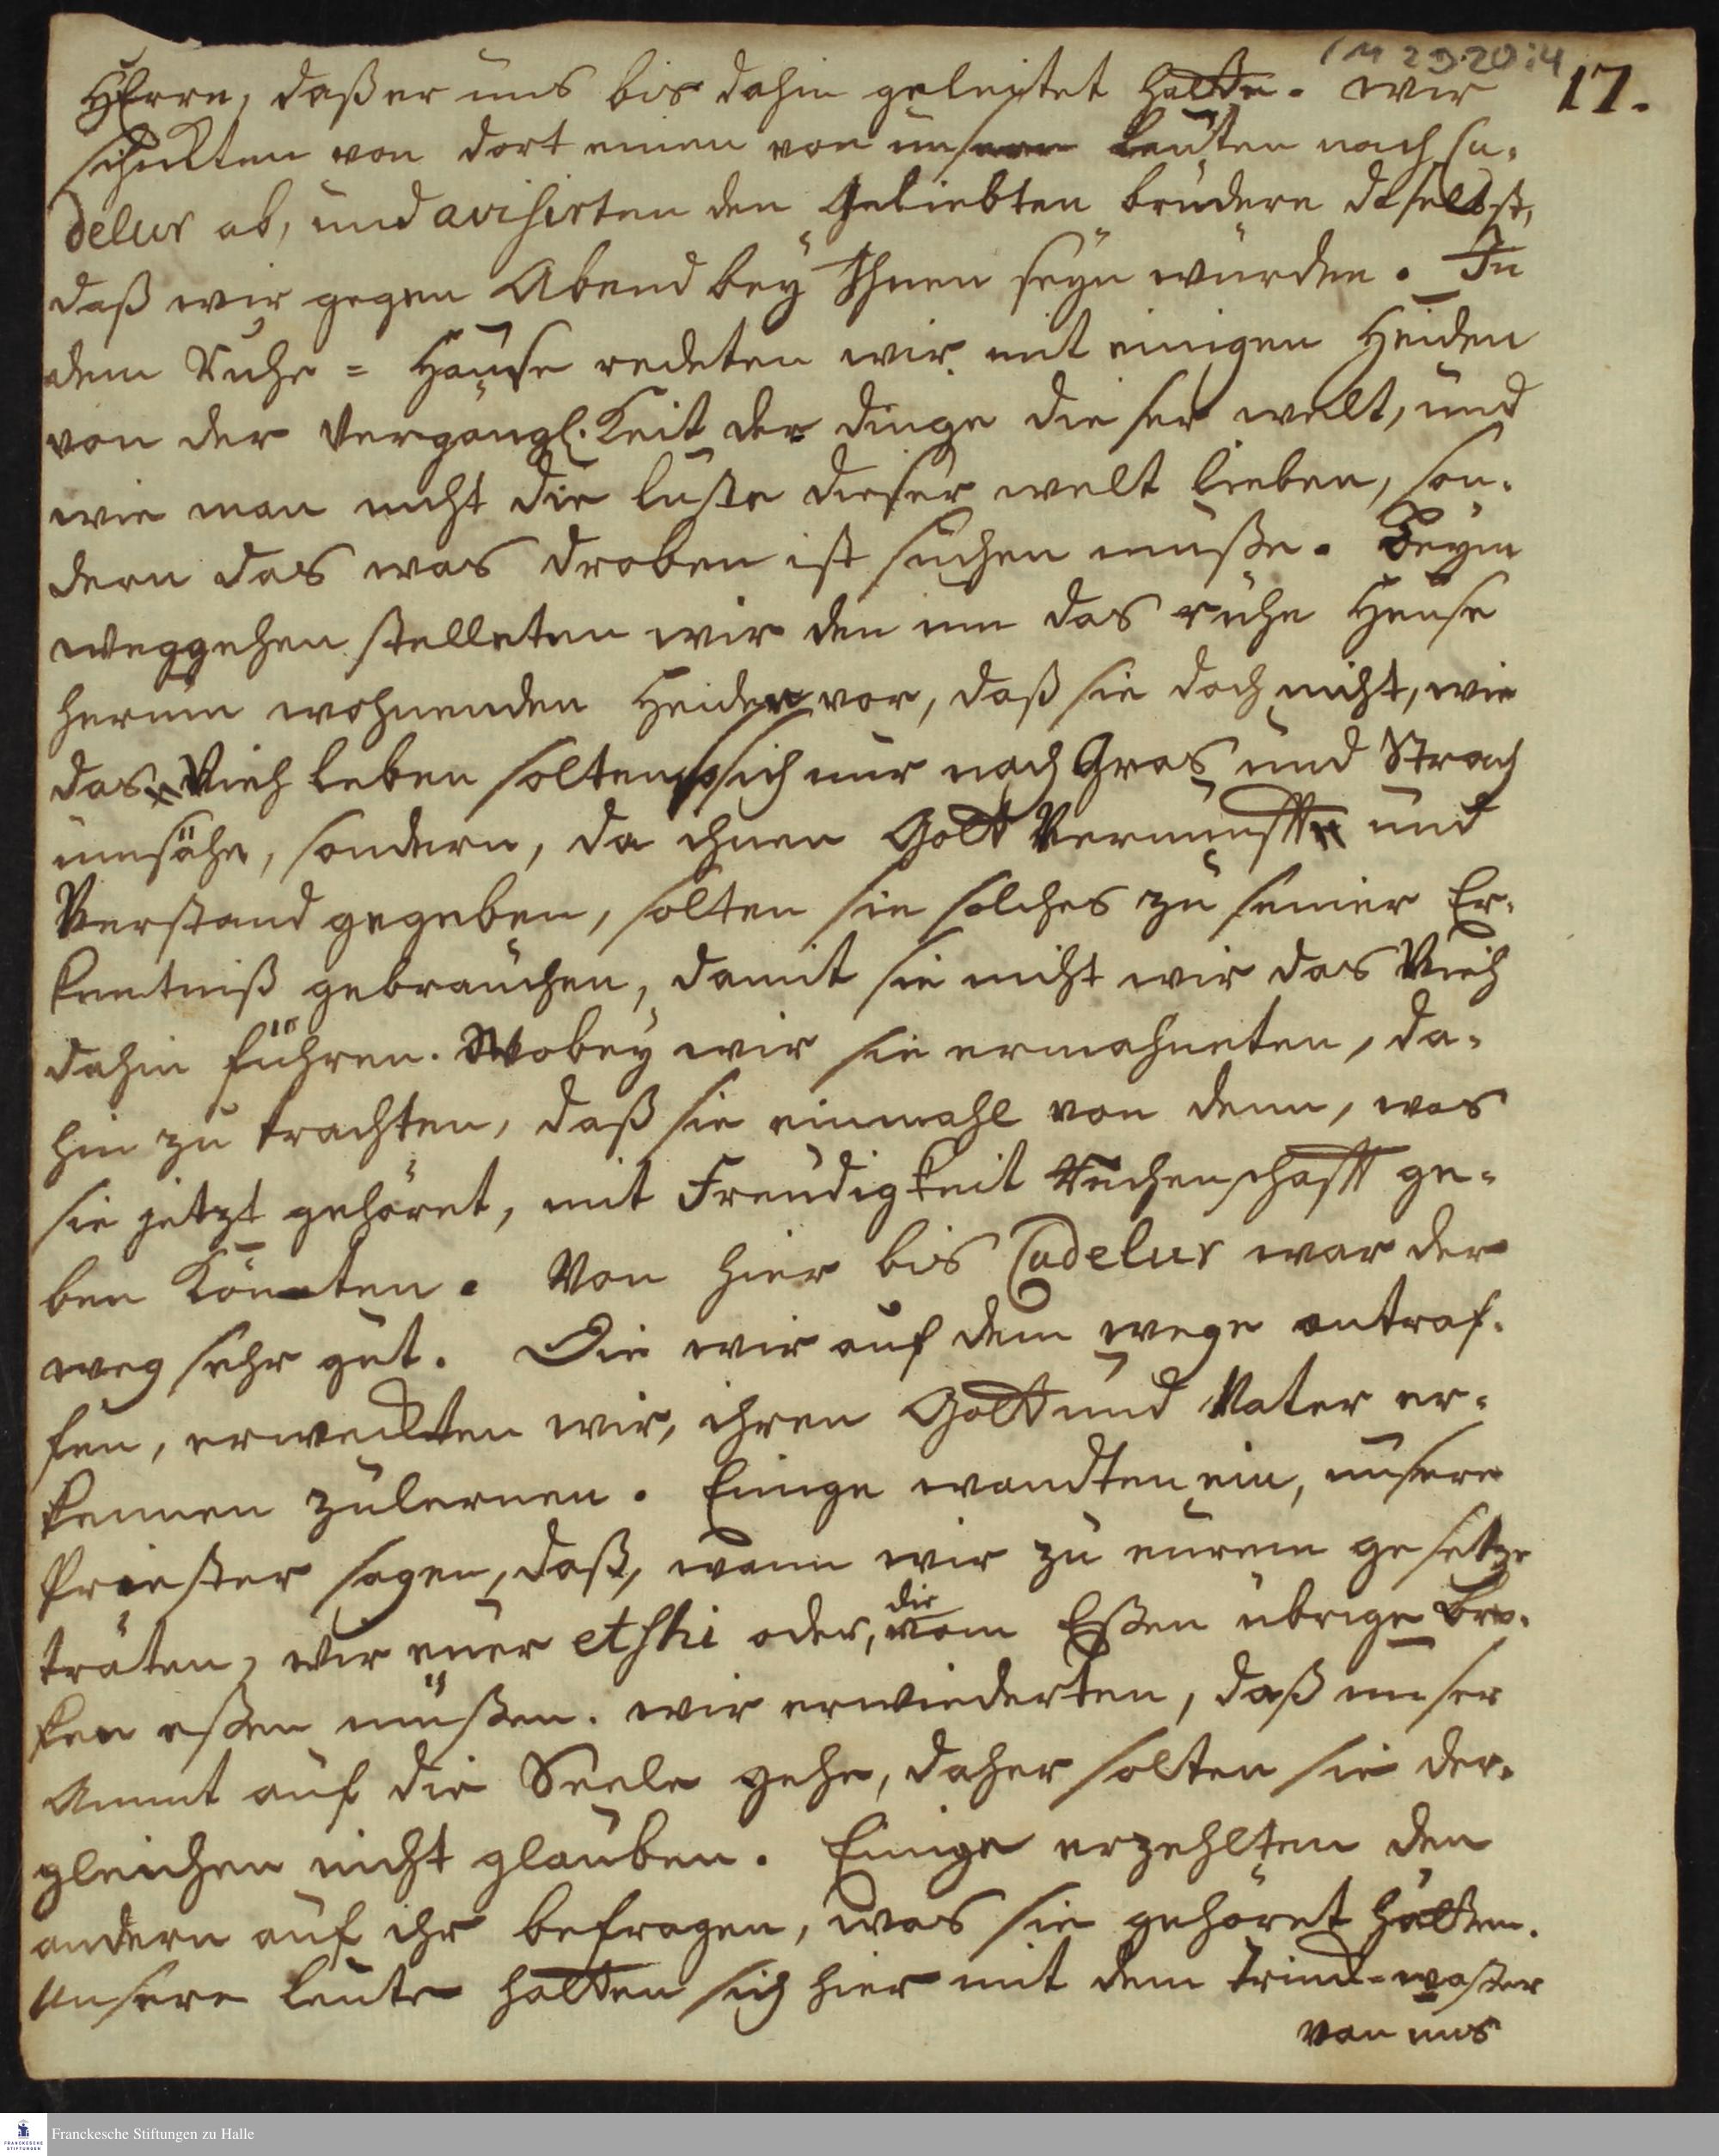 1M 29.20:4
17.
HErrn, daß er uns bis dahin geleitet hatte. wir
schickten von dort einen von unsern Leuten nach Cu-
delur ab, und avisirten den Geliebten brüdern daselbst,
daß wir gegen Abend bey Ihnen seyn würden. In
dem Ruhe = Hause redeten wir mit einigen Heiden
von der Vergängl. Keit der dinge dieser welt, und
wie man nicht die lüste dieser welt lieben, son-
dern das was droben ist suchen müße. Beym
weggehen stelleten wir den um das ruhe Hause
herum wohnenden Heiden vor, daß sie doch nicht, wie
das Vieh leben solten, so sich nur nach Gras und Stroh
umsähe, sondern, da ihnen Gott Vernunfft und
Verstand gegeben, solten sie solches zu seiner Er-
kentniß gebrauchen, damit sie nicht wie das Vieh
dahin führen. Wobey wir sie ermahneten, da-
hin zu trachten, daß sie einmahl von dem, was
sie jetzt gehöret, mit Freudigkeit Rechenschafft ge-
ben könten. Von hier bis Cudelur war der
weg sehr gut. Die wir auf dem wege antraf-
fen, erweckten wir, ihren Gott und Vater er-
kennen zulernen. Einige wandten ein, unsere
Priester sagen, daß, wenn wir zu eurem gesetze
träten, wir euer etshi oder, die vom Eßen übrige Bro-
ken eßen müßen. wir erwiederten, daß unser
Ammt auf die Seele gehe, daher solten sie der-
gleichen nicht glauben. Einige erzehlten den
andern auf ihr befragen, was sie gehöret hätten.
Unsere Leute hatten sich hier mit dem Trinck-waßer
von uns
Franckesche Stiftungen zu Halle